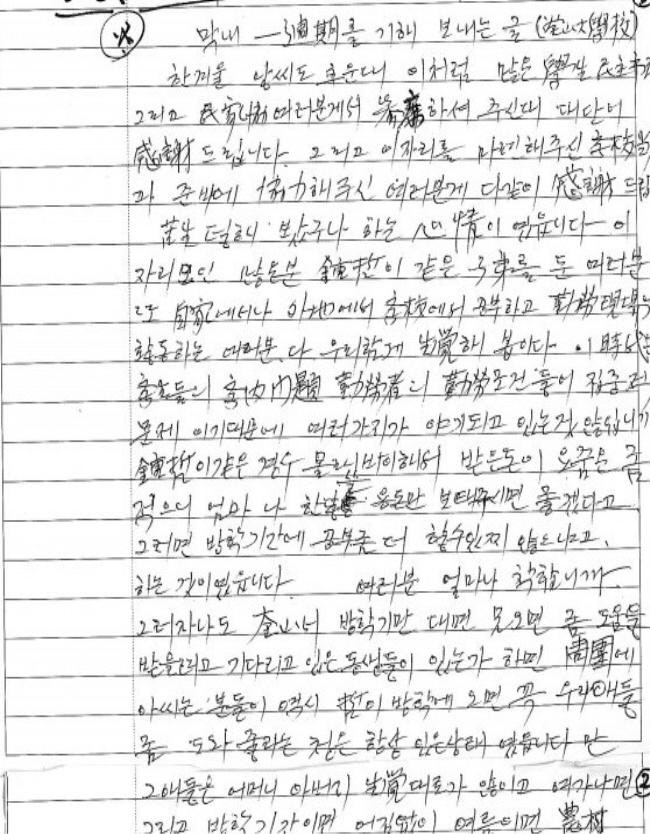 막내 一週期를 기해 보내는 글 (서울大學校)
한겨울 날씨도 추운대 이처럼 많은 學생 民主
그리고 民家協 여러분게서 參席하셔 주신대 대단히
感謝드립니다. 그리고 이자리를 마련해주신 李校
과 준비에 協力해주신 여러분게 다같이 感謝 드림
보았구나 하는 心情이 였읍니다 - 이
자리모인 많은분 鍾哲이 같은 子弟를 둔 여러분
또 自家에서나 學校에서 공부하고 勤勞現場
활동하는 여러분 다 우리함게 生覺해 봅이다. 이 時代
學生들의 學內問題 勤勞者의 勤勞조건 들이 집중된
문제 이기때문에 여러가지가 야기되고 있는것 않입니까
鍾哲이같은 경우 몰래빋바이해서 받은돈이 요줌은 좀
적으니 엄마 나 한달 용돈만 보태주시면 좋겠다고
그러면 방학기간에 공부좀 더 할수있찌 않느냐고,
하는 것이였읍니다. 여러분 얼마나 착합니까.
그러자나도 방학기만 대면 못오면 좀 도움을
받을려고 기다리고 있은 동생들이 있는가 하면 周圍에
아씨는 분들이 역시 哲이 방학에 오면 꼭 우리애들
좀 도와 줄라는 청은 항상 있은상태 였읍니다 만
그애들은 어머니 아버지 生覺대로가 않이고 여가나면
그리고 방학기간이면 어김없이 여름이면 農村